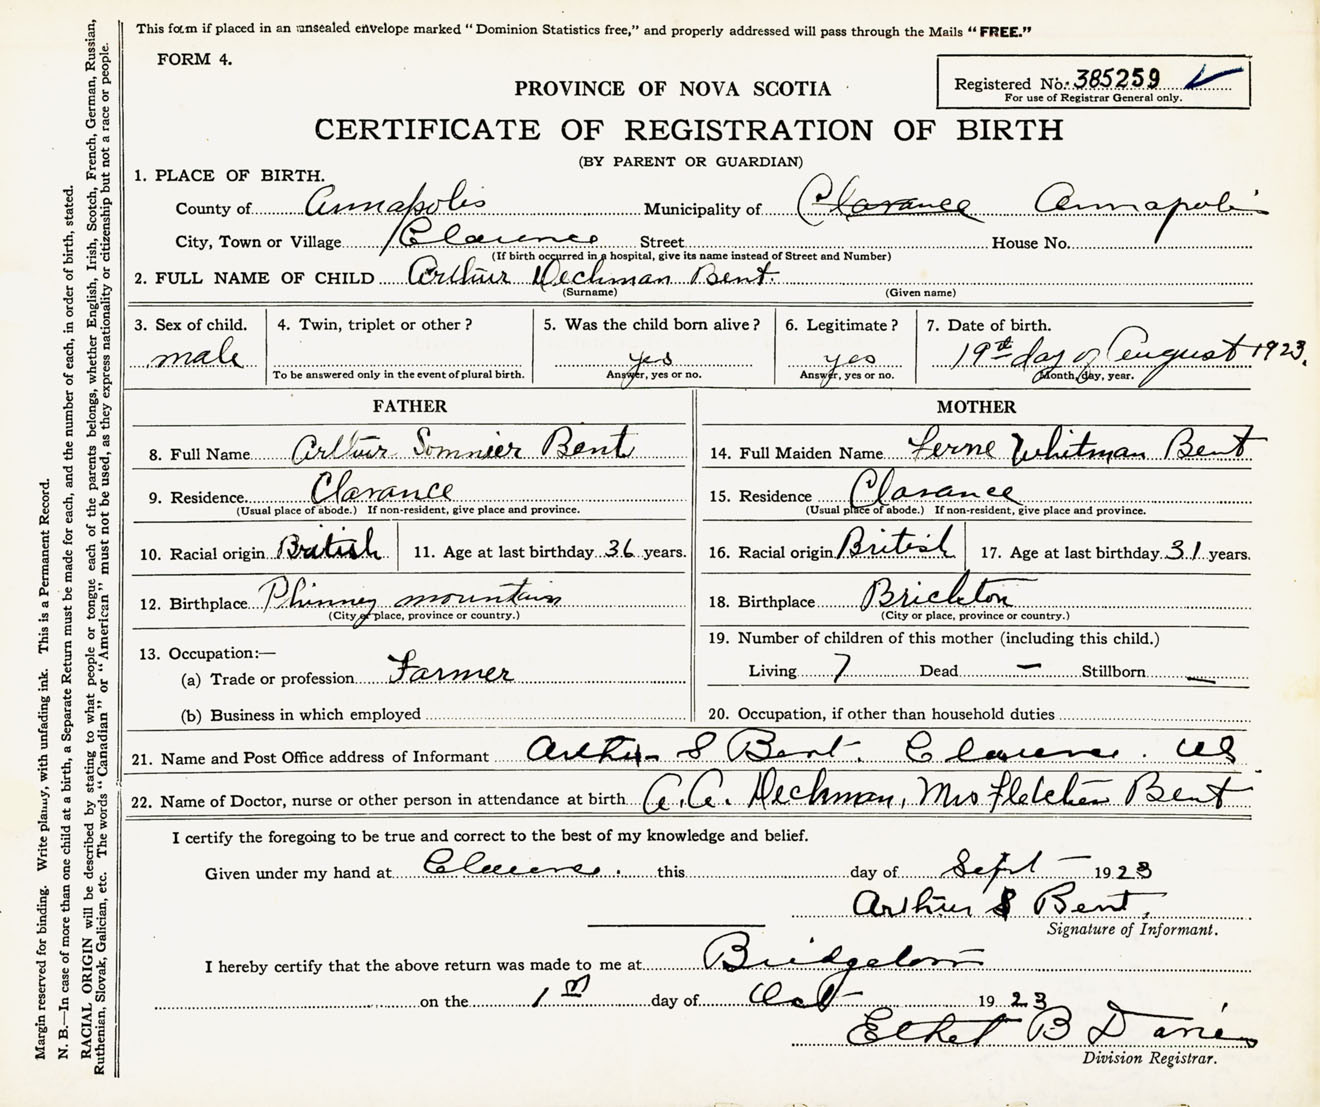 This form if placed in an unsealed envelope marked "Dominion Statistics free," and properly addressed will pass through the Mails "FREE."
FORM 4.
Registered No. 385259
For use of Registrar General only.
PROVINCE OF NOVA SCOTIA
CERTIFICATE OF REGISTRATION OF BIRTH
(BY PARENT OR GUARDIAN)
1. PLACE OF BIRTH.
County of Annapolis Municipality of Clarance Annapolis
City, Town or Village Clarence Street House No.
(If birth occurred in a hospital, give its name instead of Street and Number)
2. FULL NAME OF CHILD Arthur Dechman Bent.
(Surname) (Given name)
3. Sex of child. 4. Twin, triplet or other? 5. Was the child born alive? 6. Legitimate? 7. Date of birth.
male yes yes 19th day of August 1923.
To be answered only in the event of plural birth. Answer, yes or no. Answer, yes or no. Month, day, year.
FATHER
8. Full Name Arthur Bent
9. Residence Clarance
(Usual place of abode.) If non-resident, give place and province.
10. Racial origin British 11. Age at last birthday 36 years.
12. Birthplace Phinney mountain
(City or place, province or country.)
13. Occupation:—
(a) Trade or profession Farmer
(b) Business in which employed
MOTHER
14. Full Maiden Name Ferne Whitman Bent
15. Residence Clarance
(Usual place of abode.) If non-resident, give place and province.
16. Racial origin British 17. Age at last birthday 31 years.
18. Birthplace Brickton
(City or place, province or country.)
19. Number of children of this mother (including this child.)
Living 7 Dead — Stillborn —
20. Occupation, if other than household duties
21. Name and Post Office address of Informant Arthur S Bent. Clarence.
22. Name of Doctor, nurse or other person in attendance at birth A. A. Dechman, Mrs Fletcher Bent
I certify the foregoing to be true and correct to the best of my knowledge and belief.
Given under my hand at Clarence. this day of Sept — 1923
Arthur S Bent.
Signature of Informant.
I hereby certify that the above return was made to me at Bridgetown
on the 1st day of Oct 1923
Ethel B Davies
Division Registrar.
Margin reserved for binding. Write plainly, with unfading ink. This is a Permanent Record.
N. B.—In case of more than one child at a birth, a Separate Return must be made for each, and the number of each, in order of birth, stated.
RACIAL ORIGIN will be described by stating to what people or tongue each of the parents belongs, whether English, Irish, Scotch, French, German, Russian,
Ruthenian, Slovak, Galician, etc. The words "Canadian" or "American" must not be used, as they express nationality or citizenship but not a race or people.